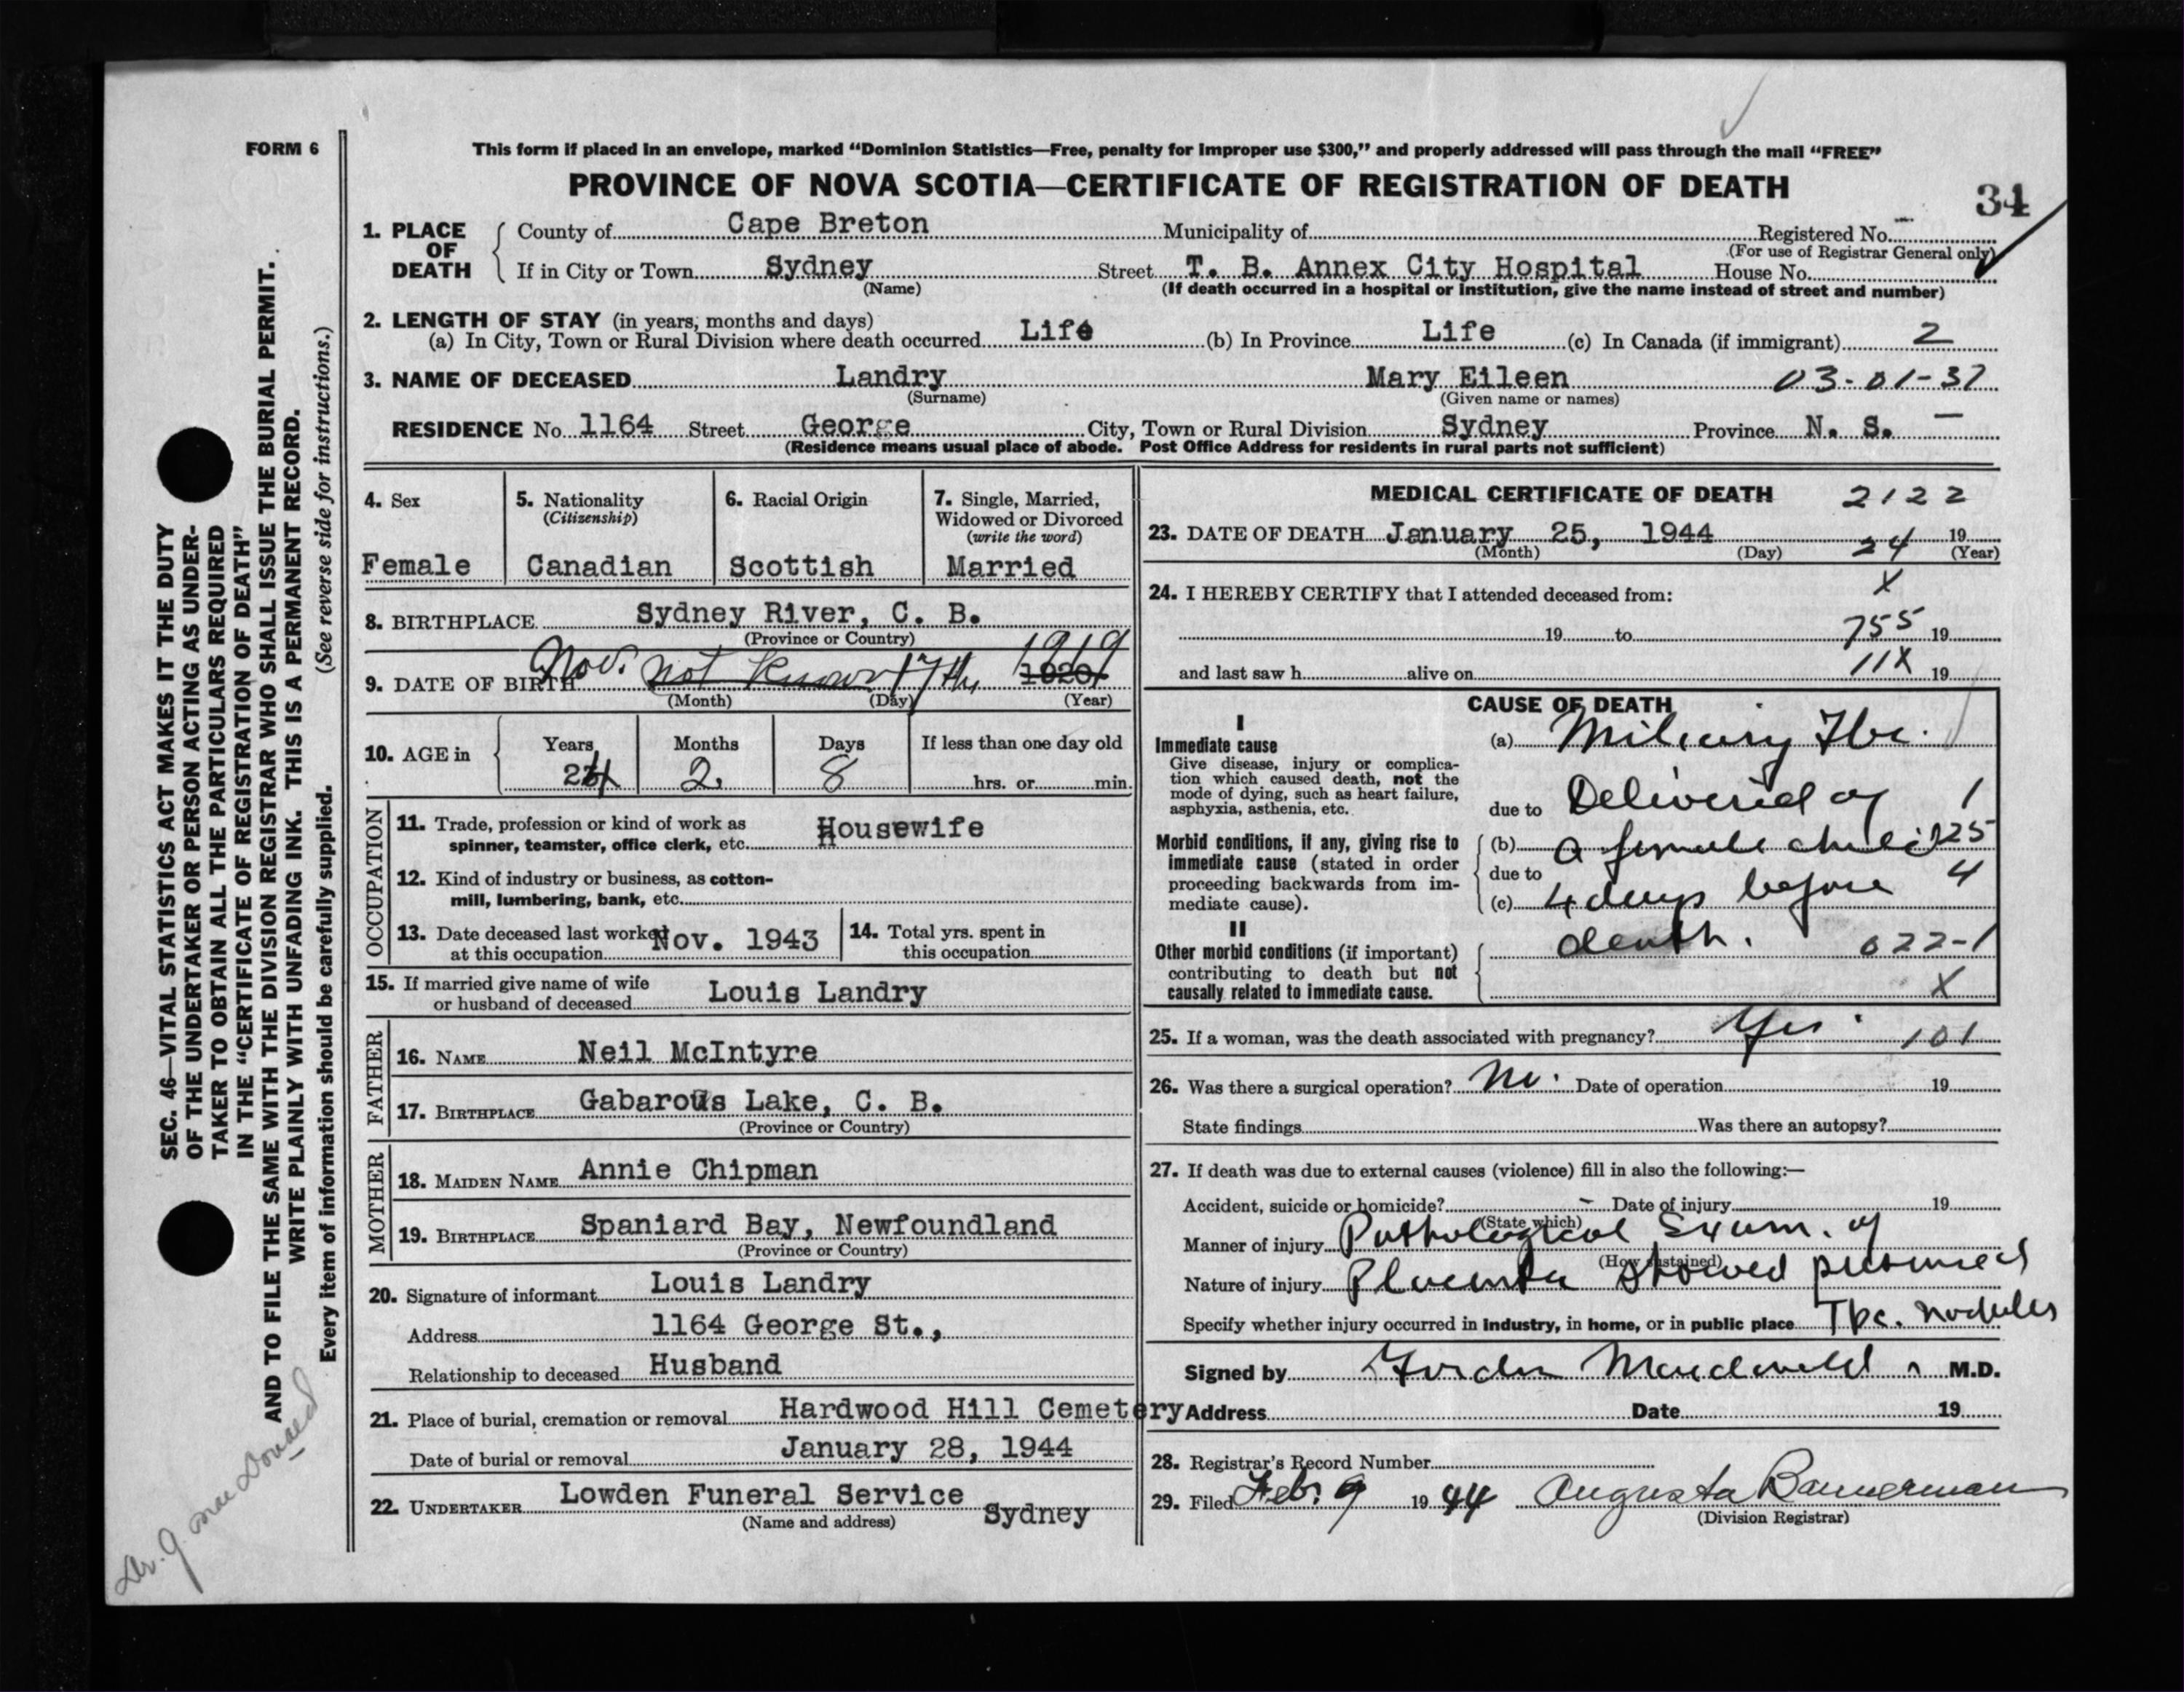 FORM 6
This form if placed in an envelope, marked “Dominion Statistics—Free, penalty for improper use $300,” and properly addressed will pass through the mail “FREE”
PROVINCE OF NOVA SCOTIA—CERTIFICATE OF REGISTRATION OF DEATH
34
1. PLACE OF DEATH
County of Cape Breton Municipality of Registered No.
(For use of Registrar General only)
If in City or Town Sydney Street T. B. Annex City Hospital House No.
(Name) (If death occurred in a hospital or institution, give the name instead of street and number)
2. LENGTH OF STAY (in years, months and days)
(a) In City, Town or Rural Division where death occurred Life (b) In Province Life (c) In Canada (if immigrant) 2
3. NAME OF DECEASED Landry Mary Eileen 03-01-37
(Surname) (Given name or names)
RESIDENCE No. 1164 Street George City, Town or Rural Division Sydney Province N. S. —
(Residence means usual place of abode. Post Office Address for residents in rural parts not sufficient)
4. Sex
Female
5. Nationality
(Citizenship)
Canadian
6. Racial Origin
Scottish
7. Single, Married,
Widowed or Divorced
(write the word)
Married
8. BIRTHPLACE Sydney River, C. B.
(Province or Country)
9. DATE OF BIRTH Nov. not known 17th 1920 1919
(Month) (Day) (Year)
10. AGE in
Years
24
Months
2
Days
8
If less than one day old
hrs. or min.
OCCUPATION
11. Trade, profession or kind of work as
spinner, teamster, office clerk, etc. Housewife
12. Kind of industry or business, as cotton-
mill, lumbering, bank, etc.
13. Date deceased last worked
at this occupation Nov. 1943
14. Total yrs. spent in
this occupation
15. If married give name of wife
or husband of deceased Louis Landry
FATHER
16. NAME Neil McIntyre
17. BIRTHPLACE Gabarous Lake, C. B.
(Province or Country)
MOTHER
18. MAIDEN NAME Annie Chipman
19. BIRTHPLACE Spaniard Bay, Newfoundland
(Province or Country)
20. Signature of informant Louis Landry
Address 1164 George St.,
Relationship to deceased Husband
21. Place of burial, cremation or removal Hardwood Hill Cemetery
Date of burial or removal January 28, 1944
22. UNDERTAKER Lowden Funeral Service Sydney
(Name and address)
MEDICAL CERTIFICATE OF DEATH 2122
23. DATE OF DEATH January 25, 1944 24 19
(Month) (Day) (Year)
24. I HEREBY CERTIFY that I attended deceased from: X
19 to 755 19
and last saw h alive on 11X 19
CAUSE OF DEATH
I
Immediate cause
Give disease, injury or complica-
tion which caused death, not the
mode of dying, such as heart failure,
asphyxia, asthenia, etc.
(a) Miliary Tbc.
due to Delivered of 1
Morbid conditions, if any, giving rise to
immediate cause (stated in order
proceeding backwards from im-
mediate cause).
(b) a female child 125
due to 4
(c) 4 days before
II
Other morbid conditions (if important)
contributing to death but not
causally related to immediate cause.
death. 022-1
X
25. If a woman, was the death associated with pregnancy? Yes 101
26. Was there a surgical operation? No. Date of operation 19
State findings Was there an autopsy?
27. If death was due to external causes (violence) fill in also the following:—
Accident, suicide or homicide? – Date of injury 19
(State which)
Manner of injury Pathological Exam. of
(How sustained)
Nature of injury Placenta showed presence of
Specify whether injury occurred in industry, in home, or in public place Tbc. nodules
Signed by Gordon Macdonald M.D.
Address Date 19
28. Registrar's Record Number
29. Filed Feb. 9 1944 Augusta Bannerman
(Division Registrar)
SEC. 46—VITAL STATISTICS ACT MAKES IT THE DUTY
OF THE UNDERTAKER OR PERSON ACTING AS UNDER-
TAKER TO OBTAIN ALL THE PARTICULARS REQUIRED
IN THE “CERTIFICATE OF REGISTRATION OF DEATH”
AND TO FILE THE SAME WITH THE DIVISION REGISTRAR WHO SHALL ISSUE THE BURIAL PERMIT.
WRITE PLAINLY WITH UNFADING INK. THIS IS A PERMANENT RECORD.
Every item of information should be carefully supplied. (See reverse side for instructions.)
Dr. G. MacDonald